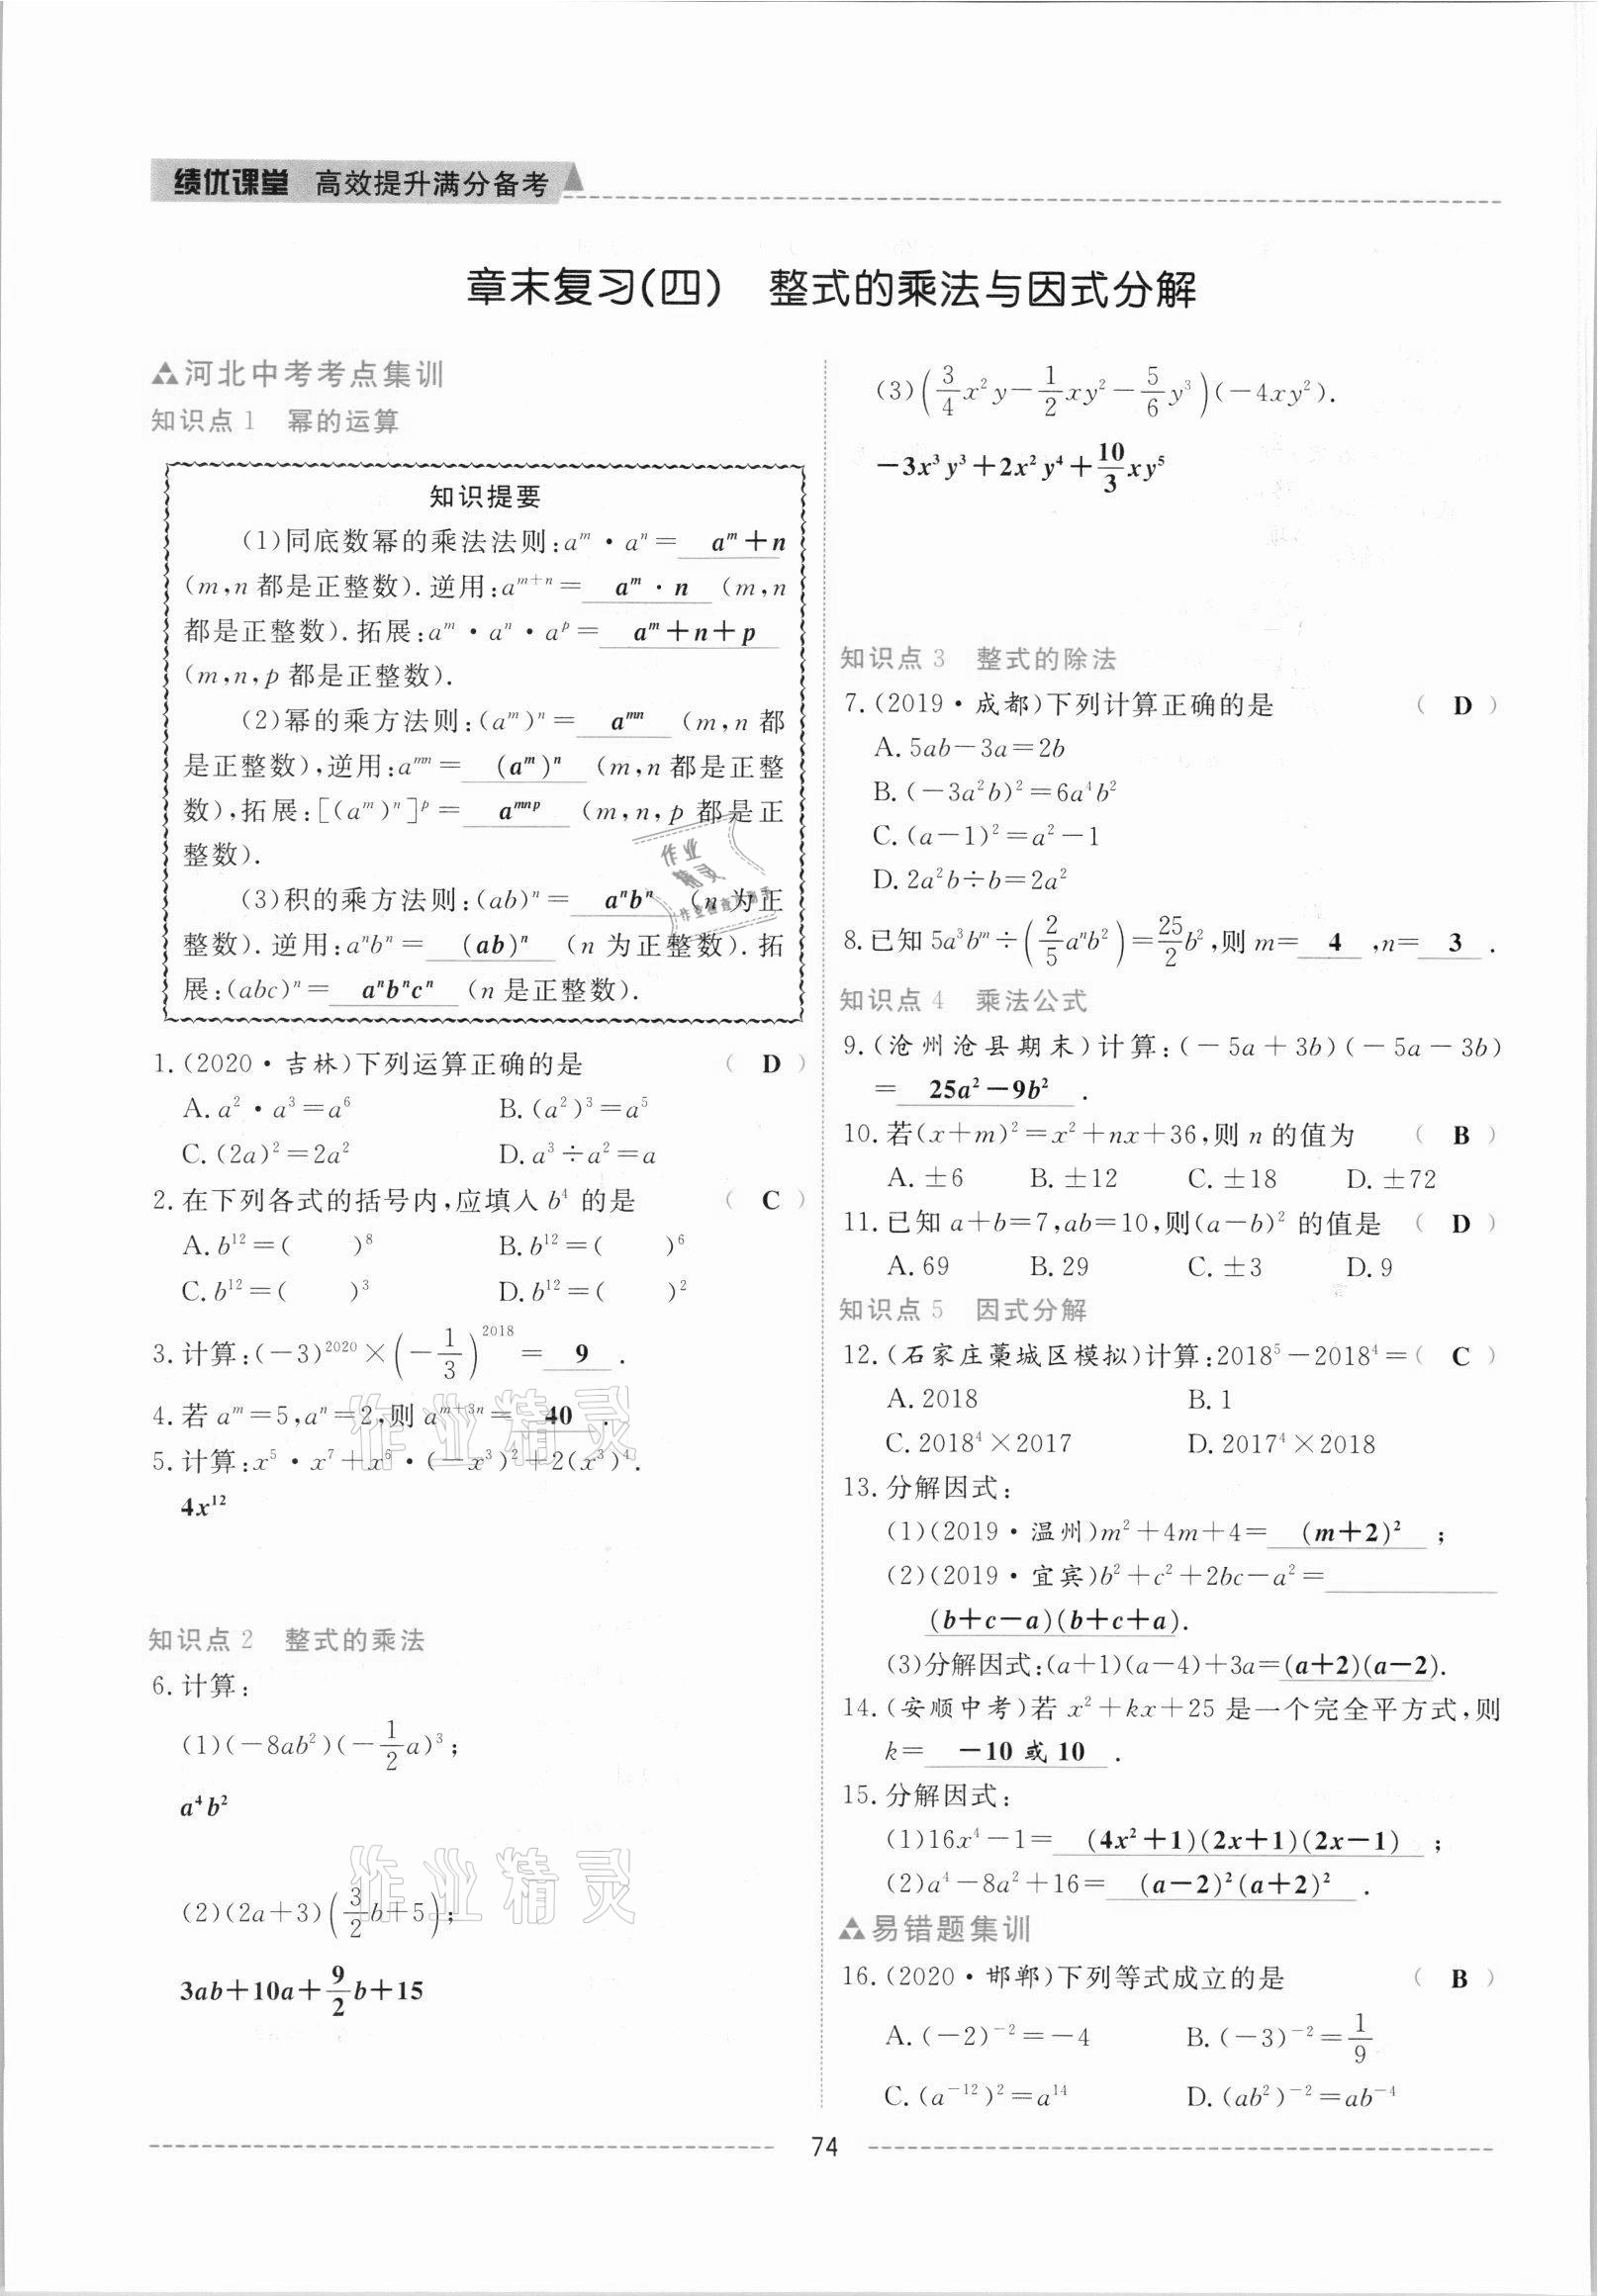 绩优课堂 高效提升满分备考
章末复习(四) 整式的乘法与因式分解
河北中考考点集训
知识点1 幂的运算
知识提要
(1)同底数幂的乘法法则:aᵐ·aⁿ= aᵐ+n
(m,n都是正整数).逆用:aᵐ⁺ⁿ= aᵐ·n (m,n
都是正整数).拓展:aᵐ·aⁿ·aᵖ= aᵐ+n+p
(m,n,p都是正整数).
(2)幂的乘方法则:(aᵐ)ⁿ= aᵐⁿ (m,n都
是正整数),逆用:aᵐⁿ= (aᵐ)ⁿ (m,n都是正整
数),拓展:[(aᵐ)ⁿ]ᵖ= aᵐⁿᵖ (m,n,p都是正
整数).
(3)积的乘方法则:(ab)ⁿ= aⁿbⁿ (n为正
整数).逆用:aⁿbⁿ= (ab)ⁿ (n为正整数).拓
展:(abc)ⁿ= aⁿbⁿcⁿ (n是正整数).
1.(2020·吉林)下列运算正确的是 ( D )
A.a²·a³=a⁶ B.(a²)³=a⁵
C.(2a)²=2a² D.a³÷a²=a
2.在下列各式的括号内,应填入b⁴的是 ( C )
A.b¹²=( )⁸ B.b¹²=( )⁶
C.b¹²=( )³ D.b¹²=( )²
3.计算:(-3)²⁰²⁰×(-1/3)²⁰¹⁸= 9 .
4.若aᵐ=5,aⁿ=2,则aᵐ⁺³ⁿ= 40 .
5.计算:x⁵·x⁷+x⁶·(-x³)²+2(x³)⁴.
4x¹²
知识点2 整式的乘法
6.计算:
(1)(-8ab²)(-1/2a)³;
a⁴b²
(2)(2a+3)(3/2b+5);
3ab+10a+9/2b+15
(3)(3/4x²y-1/2xy²-5/6y³)(-4xy²).
-3x³y³+2x²y⁴+10/3xy⁵
知识点3 整式的除法
7.(2019·成都)下列计算正确的是 ( D )
A.5ab-3a=2b
B.(-3a²b)²=6a⁴b²
C.(a-1)²=a²-1
D.2a²b÷b=2a²
8.已知5a³bᵐ÷(2/5aⁿb²)=25/2b²,则m= 4 ,n= 3 .
知识点4 乘法公式
9.(沧州沧县期末)计算:(-5a+3b)(-5a-3b)
= 25a²-9b² .
10.若(x+m)²=x²+nx+36,则n的值为 ( B )
A.±6 B.±12 C.±18 D.±72
11.已知a+b=7,ab=10,则(a-b)²的值是 ( D )
A.69 B.29 C.±3 D.9
知识点5 因式分解
12.(石家庄藁城区模拟)计算:2018⁵-2018⁴=( C )
A.2018 B.1
C.2018⁴×2017 D.2017⁴×2018
13.分解因式:
(1)(2019·温州)m²+4m+4= (m+2)² ;
(2)(2019·宜宾)b²+c²+2bc-a²=
(b+c-a)(b+c+a).
(3)分解因式:(a+1)(a-4)+3a=(a+2)(a-2).
14.(安顺中考)若x²+kx+25是一个完全平方式,则
k= -10或10 .
15.分解因式:
(1)16x⁴-1= (4x²+1)(2x+1)(2x-1) ;
(2)a⁴-8a²+16= (a-2)²(a+2)² .
易错题集训
16.(2020·邯郸)下列等式成立的是 ( B )
A.(-2)⁻²=-4 B.(-3)⁻²=1/9
C.(a⁻¹²)²=a¹⁴ D.(ab²)⁻²=ab⁻⁴
74
作业精灵
作业精灵
作业精灵